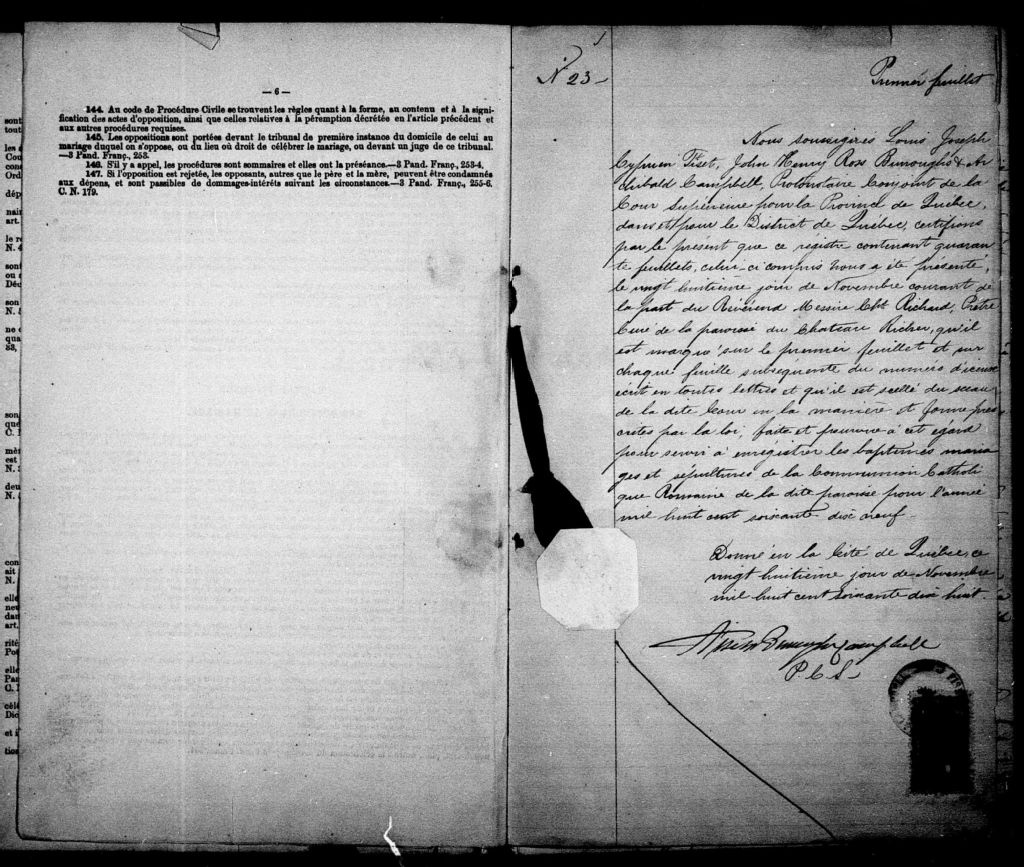 — 6 —
144. Au code de Procédure Civile se trouvent les règles quant à la forme, au contenu et à la signi-
fication des actes d'opposition, ainsi que celles relatives à la péremption décrétée en l'article précédent et
aux autres procédures requises.
145. Les oppositions sont portées devant le tribunal de première instance du domicile de celui au
mariage duquel on s'oppose, ou du lieu où droit de célébrer le mariage, ou devant un juge de ce tribunal.
—3 Pand. Franç., 253.
146. S'il y a appel, les procédures sont sommaires et elles ont la préséance.—3 Pand. Franç., 253-4.
147. Si l'opposition est rejetée, les opposants, autres que le père et la mère, peuvent être condamnés
aux dépens, et sont passibles de dommages-intérêts suivant les circonstances.—3 Pand. Franç., 255-6.
C. N. 179.
N° 23
Premier feuillet
Nous soussignés Louis Joseph
Cyprien Fiset, John Henry Ross Burroughs & Ar
chibald Campbell, Protonotaire Conjoint de la
Cour Supérieure pour la Province de Québec,
dans et pour le District de Québec, certifions
par le present que ce régistre contenant quaran
te feuillets, celui-ci compris nous a été présenté,
le vingt huitième jour de Novembre courant de
la part du Révérend Messire Richard, Prêtre
Curé de la paroisse du Chateau Richer, qu'il
est marqué sur le premier feuillet et sur
chaque feuille subsequente du numéro d'iceux
écrit en toutes lettres et qu'il est scellé du sceau
de la dite Cour en la manière et forme pres
crites par la loi, faite et pourvue à cet egard
pour servir à enrégistrer les baptêmes maria
ges et sépultures de la Communion Catholi
que Romaine de la dite paroisse pour l'année
mil huit cent soixante dix neuf
Donné en la Cité de Québec, ce
vingt huitième jour de Novembre
mil huit cent soixante dix huit.
Fiset Burroughs Campbell
P.C.S.